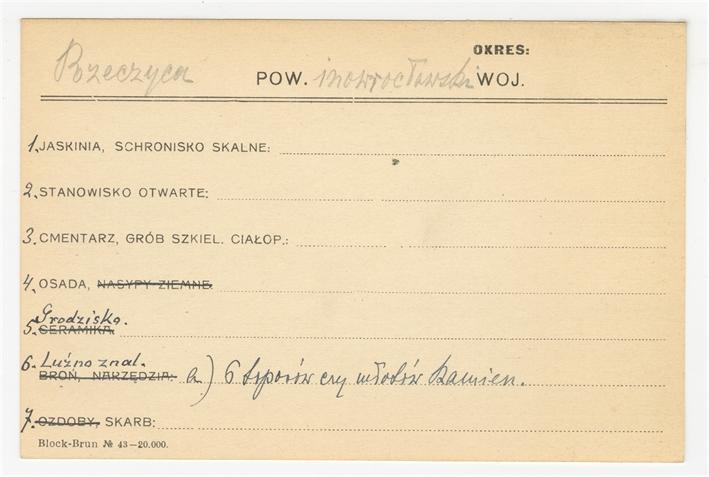 OKRES:
Rzeczyca POW. inowrocławski WOJ.
1. JASKINIA, SCHRONISKO SKALNE:
2. STANOWISKO OTWARTE:
3. CMENTARZ, GRÓB SZKIEL. CIAŁOP.:
4. OSADA, NASYPY ZIEMNE.
Grodzisko.
5. CERAMIKA.
6. Luźno znal.
BROŃ, NARZĘDZIA: a) 6 toporów czy młotów kamien.
7. OZDOBY, SKARB:
Block-Brun № 43—20.000.